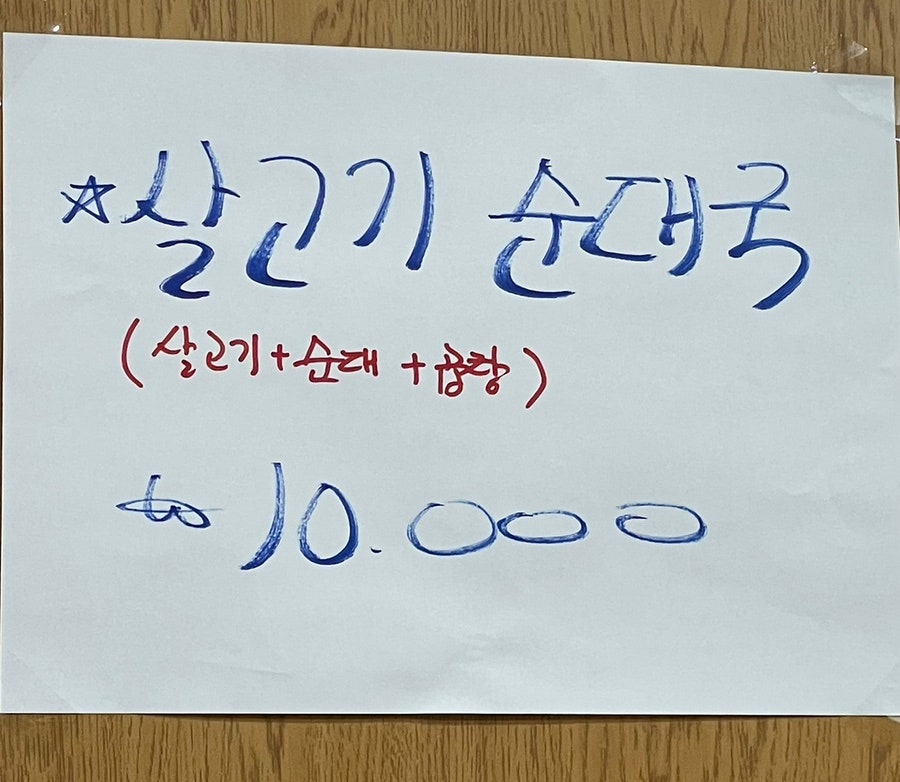 ☆살고기 순대국
(살고기+순대+곱창)
₩10.000